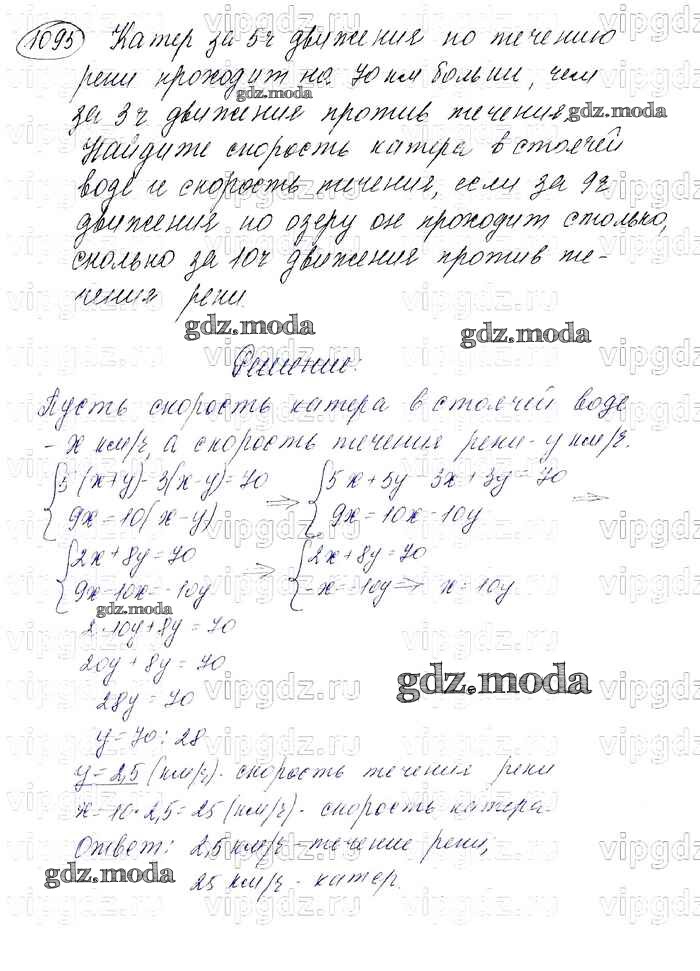 1095 Катер за 5ч движения по течению
реки проходит на 70 км больше, чем
за 3ч движения против течения.
Найдите скорость катера в стоячей
воде и скорость течения, если за 9ч
движения по озеру он проходит столько,
сколько за 10ч движения против те-
чения реки.
gdz.moda
gdz.moda
gdz.moda
gdz.moda
Решение:
Пусть скорость катера в стоячей воде
- x км/ч, а скорость течения реки - y км/ч.
{5(x+y)-3(x-y)=70 => {5x+5y-3x+3y=70 =>
9x=10(x-y) 9x=10x-10y
{2x+8y=70 => {2x+8y=70
9x-10x=-10y -x=-10y => x=10y
gdz.moda
2·10y+8y=70
20y+8y=70
gdz.moda
28y=70
y=70:28
y=2,5 (км/ч)- скорость течения реки
x=10·2,5=25 (км/ч)- скорость катера.
Ответ: 2,5 км/ч - течение реки;
gdz.moda
25 км/ч - катер.
vipgdz.ru